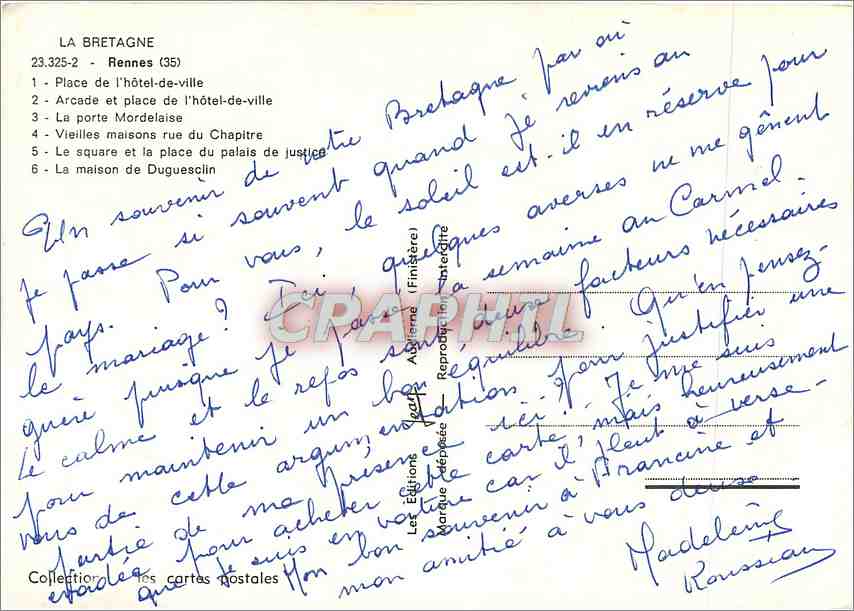 LA BRETAGNE
23.325-2 - Rennes (35)
1 - Place de l'hôtel-de-ville
2 - Arcade et place de l'hôtel-de-ville
3 - La porte Mordelaise
4 - Vieilles maisons rue du Chapitre
5 - Le square et la place du palais de justice
6 - La maison de Duguesclin
Un souvenir de votre Bretagne par où
je passe si souvent quand je reviens au
pays. Pour vous, le soleil est-il en réserve pour
le mariage? Ici, quelques averses ne me gênent
guère puisque je passe la semaine au Carmel.
Le calme et le repos sont deux facteurs nécessaires
pour maintenir un bon équilibre. Qu'en pensez-
vous de cette argumentation pour justifier une
partie de ma présence ici? Je me suis
évadée pour acheter cette carte, mais heureusement
que je suis en voiture car il pleut à verse.
Mon bon souvenir à Francine et
mon amitié à vous deux
Madeleine
Rousseau
Les Editions Jean Audierne (Finistère)
Marque déposée — Reproduction Interdite
CPAPHIL
Collection les cartes postales